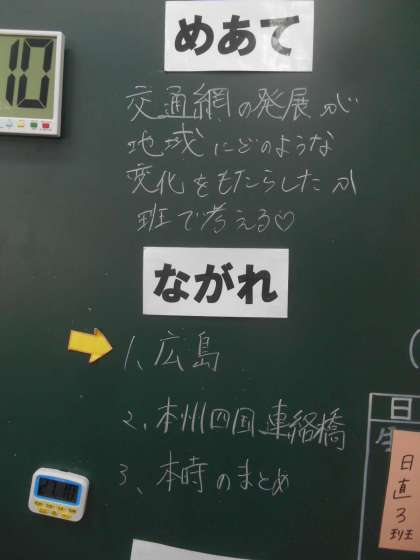 10
めあて
交通網の発展が
地域にどのような
変化をもたらしたか
班で考える♡
ながれ
1、広島
2、本州四国連絡橋
3、本時のまとめ
日
日直3班